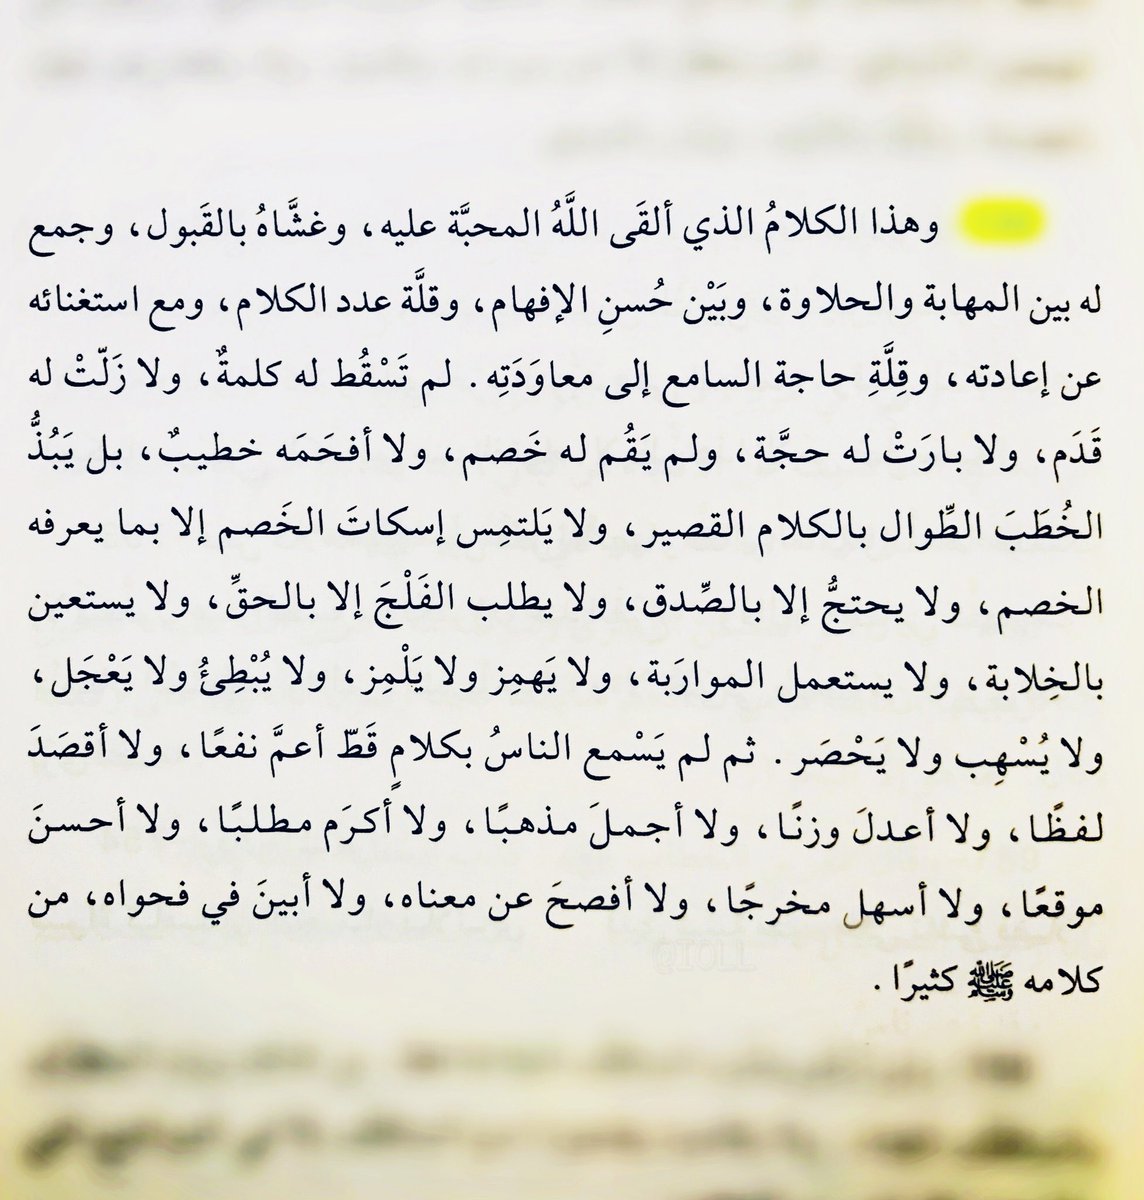 وهذا الكلامُ الذي ألقَى اللَّهُ المحبَّة عليه، وغشَّاهُ بالقَبول، وجمع
له بين المهابة والحلاوة، وبَيْن حُسنِ الإفهام، وقلَّة عدد الكلام، ومع استغنائه
عن إعادته، وقِلَّةِ حاجة السامع إلى معاوَدَتِه. لم تَسْقُط له كلمةٌ، ولا زَلّتْ له
قَدَم، ولا بارَتْ له حجَّة، ولم يَقُم له خَصم، ولا أفحَمَه خطيبٌ، بل يَبُذُّ
الخُطَبَ الطِّوال بالكلام القصير، ولا يَلتمِس إسكاتَ الخَصم إلا بما يعرفه
الخصم، ولا يحتجُّ إلا بالصِّدق، ولا يطلب الفَلْجَ إلا بالحقِّ، ولا يستعين
بالخِلابة، ولا يستعمل الموارَبة، ولا يَهمِز ولا يَلْمِز، ولا يُبْطِئُ ولا يَعْجَل،
ولا يُسْهِب ولا يَحْصَر. ثم لم يَسْمع الناسُ بكلامٍ قَطّ أعمَّ نفعًا، ولا أقصَدَ
لفظًا، ولا أعدلَ وزنًا، ولا أجملَ مذهبًا، ولا أكرَم مطلبًا، ولا أحسنَ
موقعًا، ولا أسهل مخرجًا، ولا أفصحَ عن معناه، ولا أبينَ في فحواه، من
كلامه ﷺ كثيرًا.